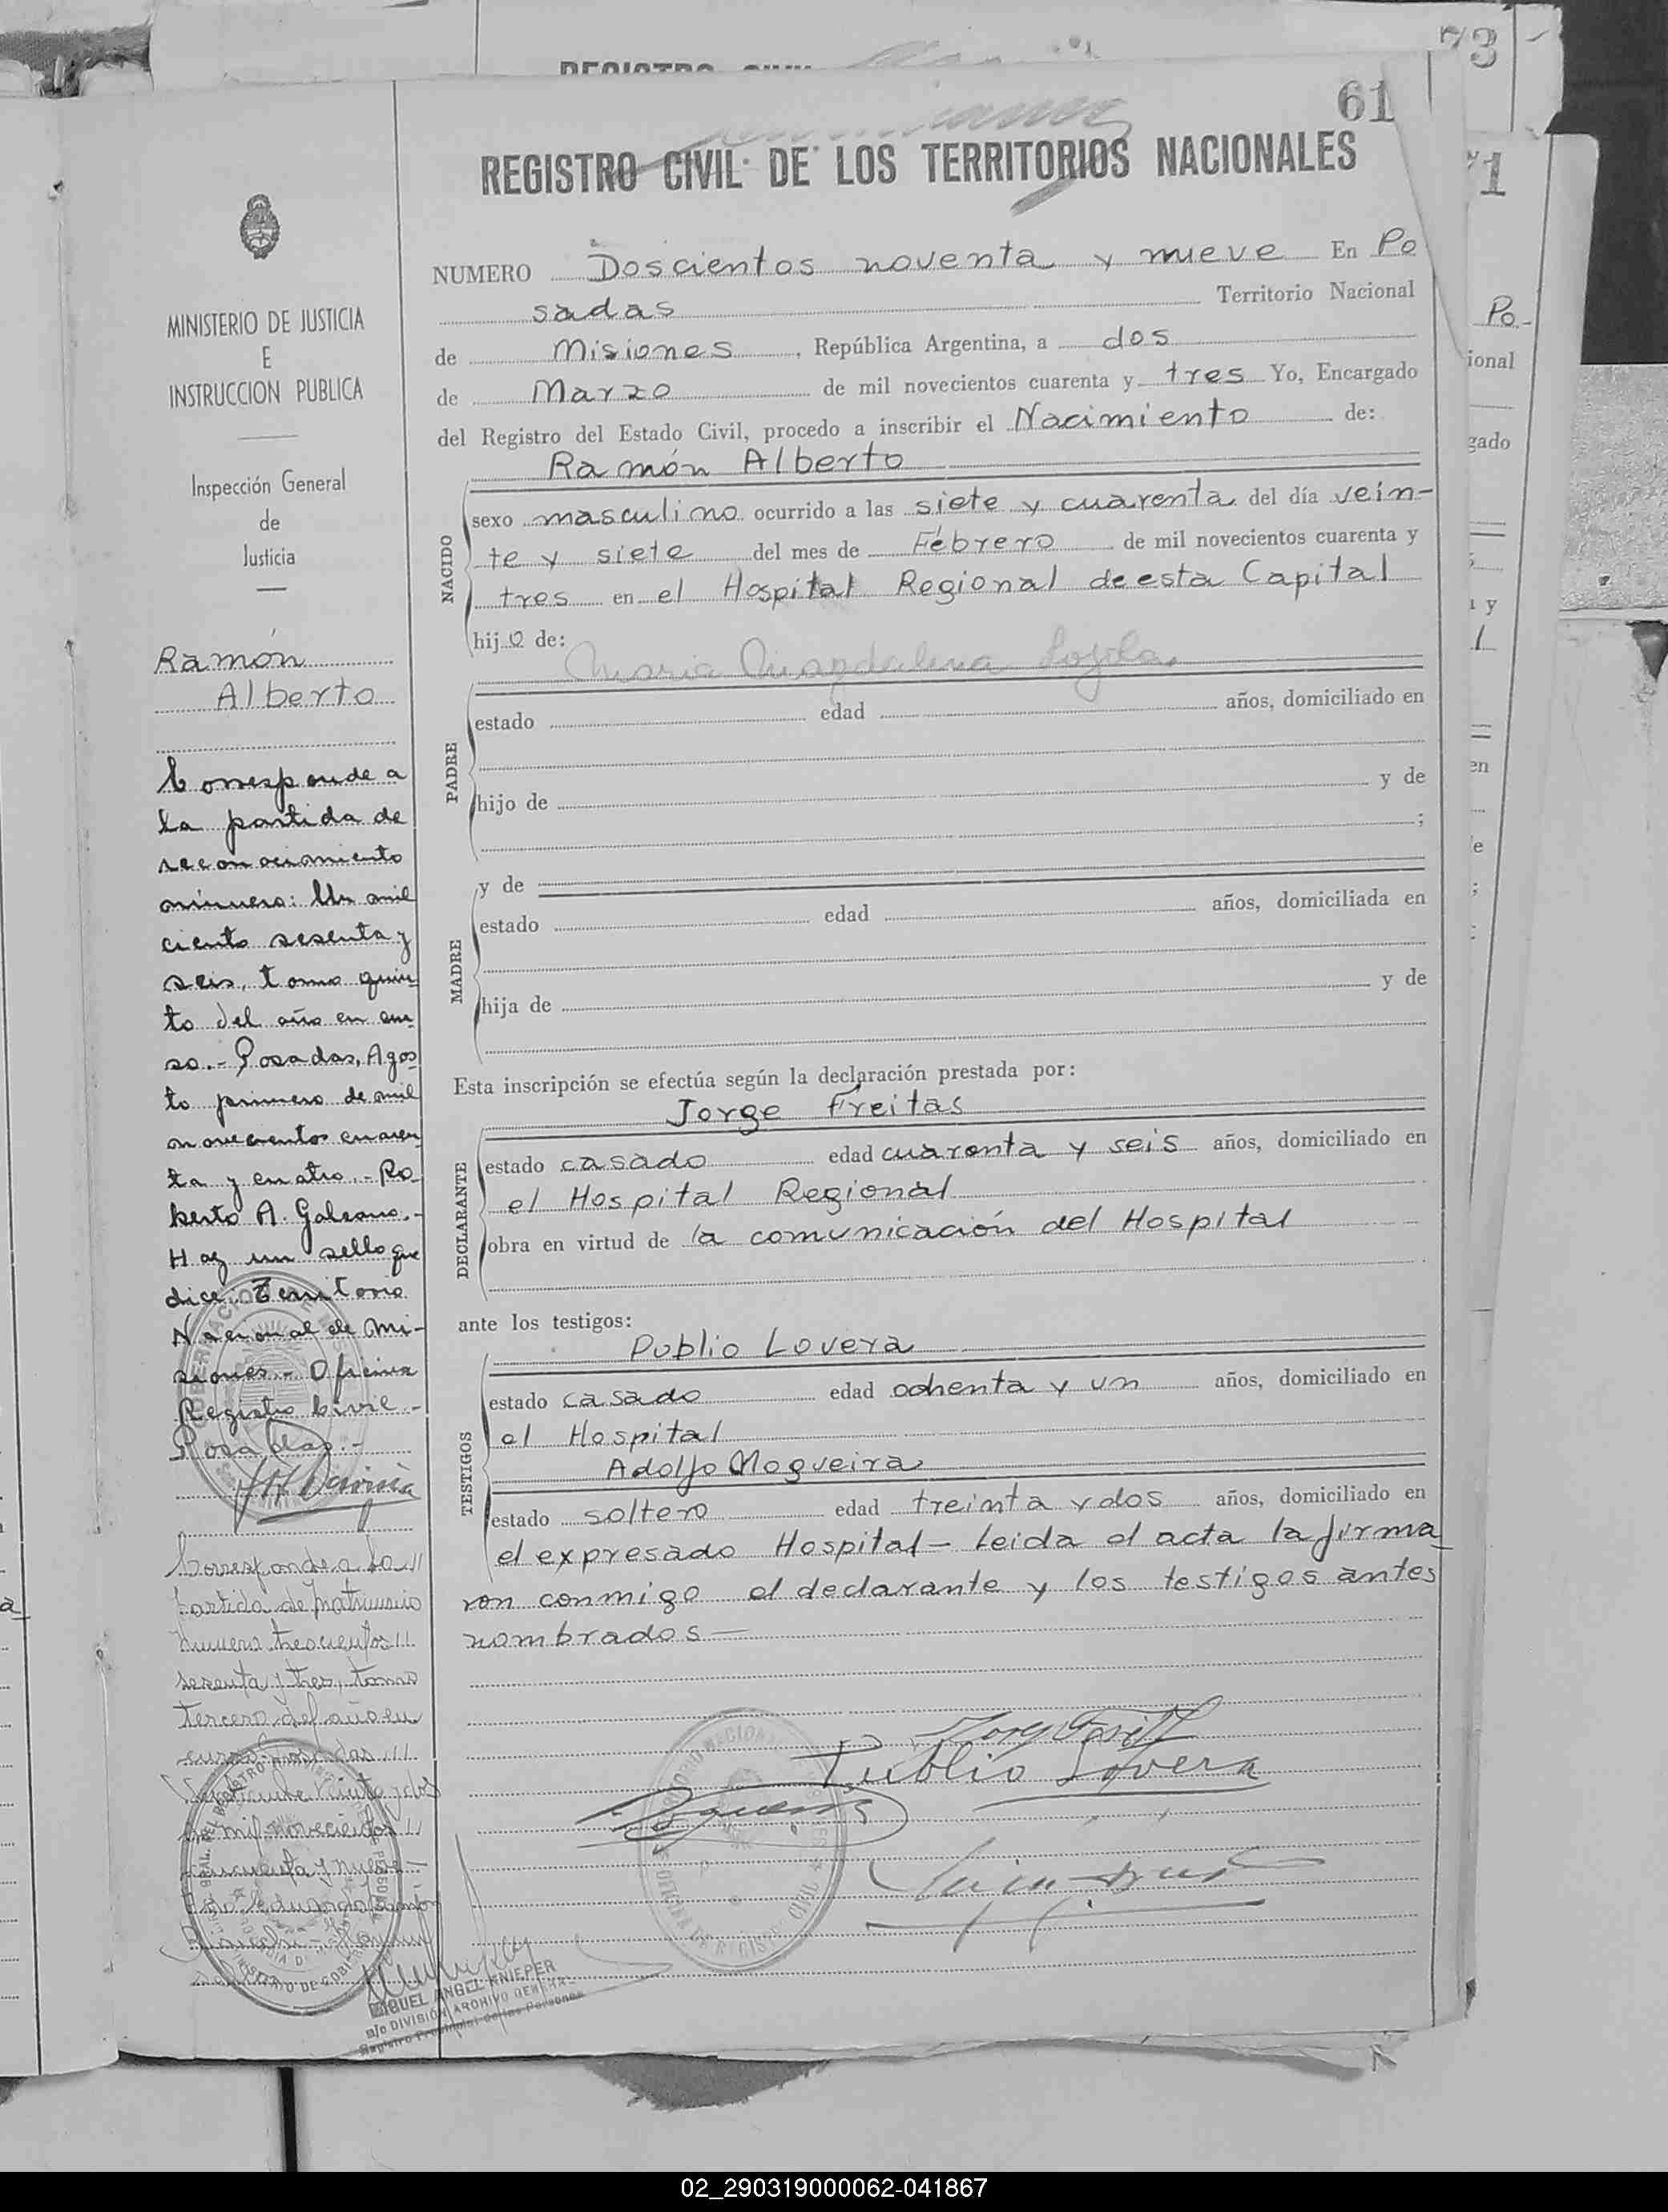 73
REGISTRO CIVIL
61
71
REGISTRO CIVIL DE LOS TERRITORIOS NACIONALES
MINISTERIO DE JUSTICIA
E
INSTRUCCION PUBLICA
Inspección General
de
Justicia
Ramón
Alberto
Corresponde a
la partida de
reconocimiento
número: Un mil
ciento sesenta y
seis, tomo quin-
to del año en cur-
so.- Posadas, Agos-
to primero de mil
novecientos cuaren-
ta y cuatro.- Ro-
berto A. Galeano.-
Hay un sello que
dice: Territorio
Nacional de Mi-
siones.- Oficina
Registro Civil.-
Posadas.-
Corresponde a la //
partida de matrimonio
número trescientos //
sesenta y tres, tomo
tercero del año en
curso. Posadas ///
veinte y dos
de mil novecientos //
cincuenta y nueve
NUMERO Doscientos noventa y nueve En Po
sadas Territorio Nacional
de Misiones, República Argentina, a dos
de Marzo de mil novecientos cuarenta y tres Yo, Encargado
del Registro del Estado Civil, procedo a inscribir el Nacimiento de:
Ramón Alberto
NACIDO
sexo masculino ocurrido a las siete y cuarenta del día vein-
te y siete del mes de Febrero de mil novecientos cuarenta y
tres en el Hospital Regional de esta Capital
hijo de:
Maria Magdalena Loyola
PADRE
estado edad años, domiciliado en
hijo de y de
;
y de
MADRE
estado edad años, domiciliada en
hija de y de
Esta inscripción se efectúa según la declaración prestada por:
Jorge Freitas
DECLARANTE
estado casado edad cuarenta y seis años, domiciliado en
el Hospital Regional
obra en virtud de la comunicación del Hospital
ante los testigos:
Publio Lovera
TESTIGOS
estado casado edad ochenta y un años, domiciliado en
el Hospital
Adolfo Nogueira
estado soltero edad treinta y dos años, domiciliado en
el expresado Hospital - Leida el acta la firma_
ron conmigo el declarante y los testigos antes
nombrados -
Publio Lovera
OFICINA DE REGISTRO CIVIL
MIGUEL ANGEL KNIEPER
a/c DIVISION ARCHIVO GENERAL
Registro Provincial de las Personas
Po-
ional
gado
y
en
e
;
02_290319000062-041867